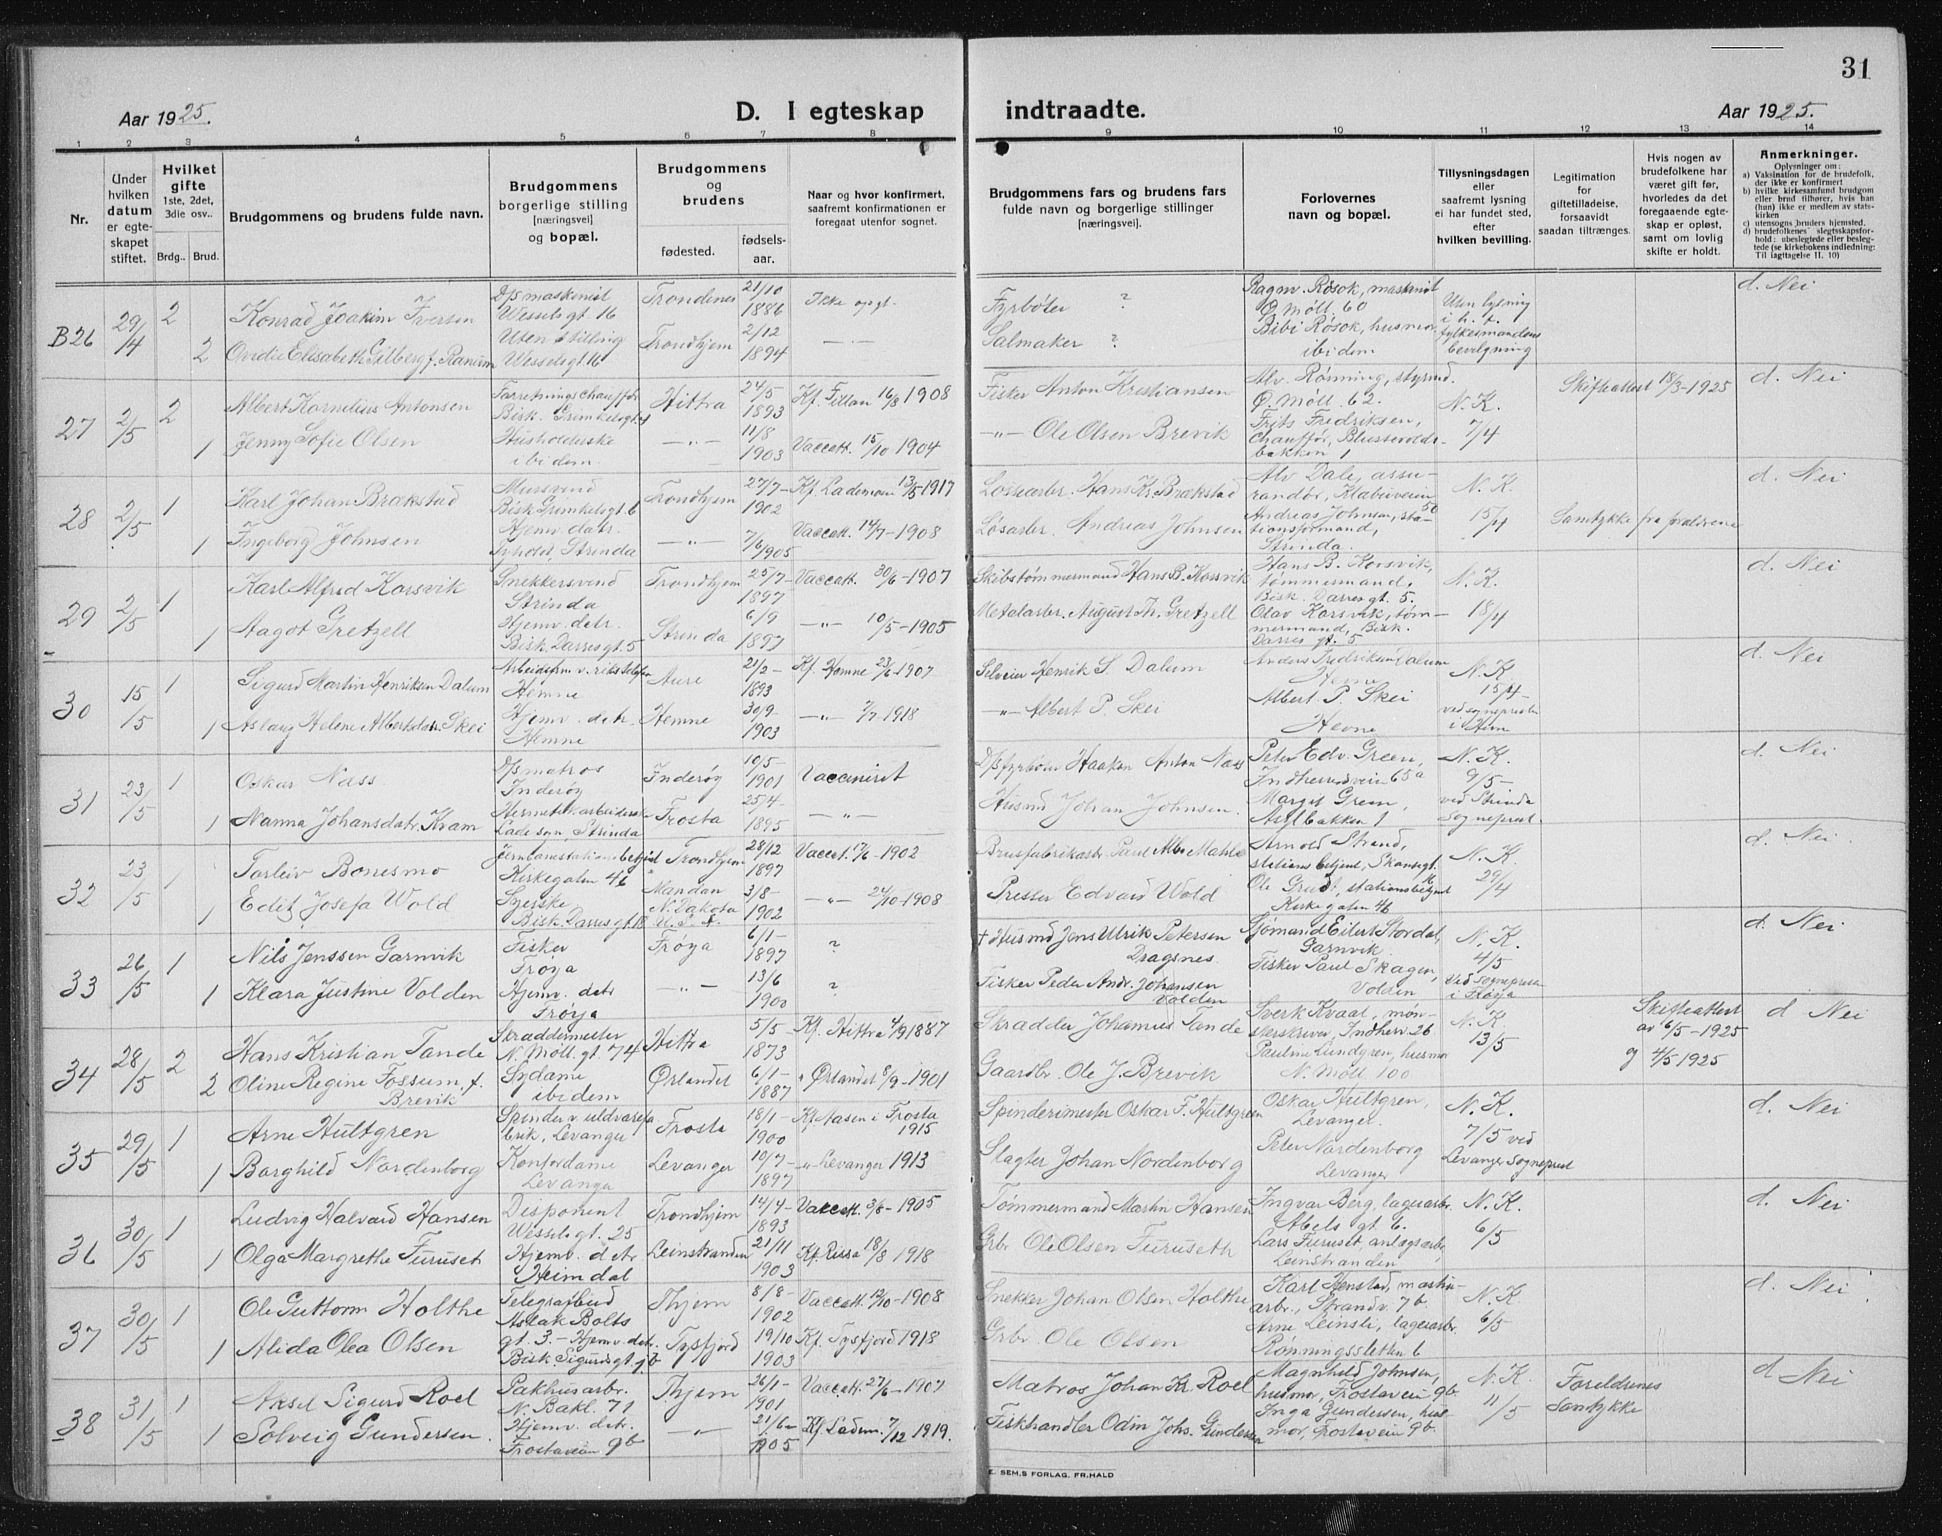 31
Aar 1925.
D. I egteskap indtraadte.
Aar 1925.
1 2 3 4 5 6 7 8 9 10 11 12 13 14
Nr.
Under hvilken datum er egteskapet stiftet.
Hvilket gifte 1ste, 2det, 3die osv..
Brdg.. Brud.
Brudgommens og brudens fulde navn.
Brudgommens borgerlige stilling [næringsvei] og bopæl.
Brudgommens og brudens
fødested.
fødselsaar.
Naar og hvor konfirmert, saafremt konfirmationen er foregaat utenfor sognet.
Brudgommens fars og brudens fars fulde navn og borgerlige stillinger [næringsvei]
Forlovernes navn og bopæl.
Tillysningsdagen eller saafremt lysning ei har fundet sted, efter hvilken bevilling.
Legitimation for giftetilladelse, forsaavidt saadan tiltrænges.
Hvis nogen av brudefolkene har været gift før, hvorledes da det foregaaende egteskap er opløst, samt om lovlig skifte er holdt.
Anmerkninger.
Oplysninger om:
a) Vaksination for de brudefolk, der ikke er konfirmert
b) hvilke kirkesamfund brudgom eller brud tilhører, hvis han (hun) ikke er medlem av statskirken
c) utensogns bruders hjemsted.
d) brudefolkenes slegtsskapsforhold: ubeslegtede eller beslegtede (se kirkebokens indledning: Til Iagttagelse II. 10)
B26 29/4 2 Konrad Joakim Iversen D/S maskinist Wesselsgt 16 Trondenes 21/10 1886 Ikke opgt. Fyrbøter ? Ragnv. Røsok, maskinist Ø. Møll. 60 Uten lysning i h. t. fylkesmandens bevilgning d. Nei
2 Ovidie Elisabeth Gilberg f. Ranum Uten stilling Wesselsgt 16 Trondhjem 2/12 1894 — " — Salmaker ? Bibi Røsok, husmor, ibidem
27 2/5 2 Albert Kornelius Antonsen Forretningschauffør Bisk. Grimkelsgt. Hittra 24/5 1893 Kf. Fillan 16/8 1908 Fisker Anton Kristiansen Alv. Rønning, styrmd. Ø. Møll. 62. N. K. 7/4 Skifteattest 18/3-1925 d. Nei
1 Jenny Sofie Olsen Husholderske ibidem — " — 11/8 1903 Vaccatt. 15/10 1904 — " — Ole Olsen Brevik Frits Fredriksen, Chauffør, Blussevoldsbakken 1
28 2/5 1 Karl Johan Brakstad Mursvend Bisk Grimkelsgt 6 Trondhjem 27/7- 1902 Kf. Lademoen 13/5-1917 Losarbr. Hans Kr. Brakstad Alv Dale, assurandør, Klæbuveien 50 N. K. 15/4 Samtykke fra forældrene d. Nei
1 Ingeborg Johnsen Hjemv. datr. Strinda — " — 7/6 1905 Vaccatt. 14/7-1908 Løsarbr. Andreas Johnsen Andreas Johnsen, stationsformand, Strinda.
29 2/5 1 Karl Alfred Korsvik Snekkersvend Strinda Trondhjem 25/7- 1897 Vaccatt. 30/6-1907 Skibstømmermand Hans B. Korsvik Hans B. Korsvik, tømmermand, Bisk. Darresgt. 5. N. K. 18/4 d. Nei
1 Aagot Gretzell Hjemv. detr. Bisk. Darresgt 5 Strinda 6/9 1897 — " — 10/5-1905 Metalarbr. August Th. Gretzell Olav Korsvik, tømmermand, Bisk. Darres gt. 5
30 15/5 1 Sigurd Martin Henriksen Dalum Arbeidsfm v. riks telefon Hemne Aure 21/2- 1893 Kf. Hemne 23/6-1907 Selveier Henrik S. Dalum Anders Fredriksen Dalum Hevne N. K. 15/4 ved sogneprester i Hevn d. Nei
1 Aslaug Helene Albertsdatr. Skei Hjemv. detr. Hemne Hemne 30/9- 1903 — " — 7/7-1918 — " — Albert P. Skei Albert P. Skei Hevne
31 23/5 1 Oskar Næss D/S matros Inderøy Inderøy 10/5- 1901 Vaccineret D/S fyrbøter Haakon Anton Næss Peter Edv. Green, Indherredsveien 65a N. K. 9/5- ved Strinda Sogneprest d. Nei
1 Nanna Johansdatr. Kvam Hermetik arbeiderske Lade sgn, Strinda Frosta 25/4- 1895 — " — Husmd Johan Johnsen Margit Green, Asylbakken 1
32 23/5 1 Torleiv Bonesmo Jernbanestationsbetjent Kirkegaten 46 Trondhjem 28/12 1897 Vaccatt. 17/6-1902 Brusfabrikarb. Paul Alb. Mahle Arnold Strand, stationsbetjent, Skansegt. N. K. 29/4 d. Nei
1 Edit Josefa Wold Syerske Bisk. Darresgt. 18 Mandan N. Dakota U. S. A. 3/8- 1902 — " — 24/10-1908 Presser Edvard Wold Ole Grudt, stationsbetjent Kirkegaten 46
33 26/5 1 Nils Jenssen Garnvik Fisker Frøya Frøya 6/1- 1897 ? † Husmd Jens Ulrik Petersen Dragsnes Sjømand Eilert Stordal, Garnvik N. K. 4/5 Ved Sogneprest i Frøya d. Nei
1 Klara Justine Volden Hjemv. detr Frøya — " — 13/6 1900 ? Fisker Peder Andr. Johansen Volden Fisker Paul Skagen, Volden
34 28/5 2 Hans Kristian Tande Skræddermester N. Møll. gt. 74 Hittra 5/5- 1873 Kf. Hittra 4/9 1887 Skrædder Johannes Tande Sverk Kvaal, mønsterskriver, Indherv. 26 N. K. 13/5 Skifteattest av 6/5-1925 og 4/5 1925 d Nei
2 Oline Regine Fossum, f. Brevik Sydame ibidem Ørlandet 6/1- 1887 " Ørlandet 8/9-1901 Gaardbr. Ole J. Brevik Pauline Lundgren, husmor N. Møll 100
35 29/5 1 Arne Hultgren Spinder v. uldvarefabrik, Levanger Frosta 18/1- 1900 Kf. Aasen i Frosta 1915 Spinderimester Oskar F. Hultgreen Oskar Hultgren, Levanger. N. K. 7/5 ved Levanger Sogneprest d. Nei
1 Borghild Nordenborg Kontordame Levanger Levanger 10/7- 1897 " Levanger 1913 Slagter Johan Nordenborg Peter Nordenborg Levanger
36 30/5 1 Ludvig Halvard Hansen Disponent Wesselsgt. 25 Trondhjem 14/4- 1893 Vaccatt. 3/8-1905 Tømmermand Martin Hansen Ingvar Berg, lagerarbr. Abels gt 6. N. K. 6/5 d. Nei
1 Olga Margrethe Furuset Hjemv. detr Heimdal Leinstranden 21/11 1903 Kf. Rissa 18/8 1918 Grbr Ole Olsen Furuseth Lars Furuset, anlægsarbr. Leinstranden
37 30/5 1 Ole Guttorm Holthe Telegrafbud Aslak Bolts gt. 3 - Thjem 8/8- 1902 Vaccatt. 12/10-1908 Snekker Johan Olsen Holthe Karl Renstad, maskinarbr., Strandv. 7b. N. K. 6/5 d. Nei
1 Alida Olea Olsen Hjemv. detr. Bisk. Sigurdsgt. Tysfjord 19/10 1903 Kf. Tysfjord 1918 Grbr. Ole Olsen Arne Leinsli, lagerarbr. Rønningssletten 6
38 31/5 1 Aksel Sigurd Roel Pakhusarbr. N. Bakl. 71 Thjem 26/1- 1901 Vaccatt. 27/6-1907 Matros Johan Kr. Roel Magnhild Johnsen, husmor, Frostaveien 9b N. K. 11/5 Foreldrenes Samtykke d. Nei
1 Solveig Gundersen. Hjemv. detr. Frostaveien 9b — " — 21/6- 1905 Kf. Ladem. 7/12 1919. Fiskhandler Odin Johs. Gundersen Inga Gundersen, husmor, Frostaveien 9b.
E. SEM.S FORLAG, FR.HALD